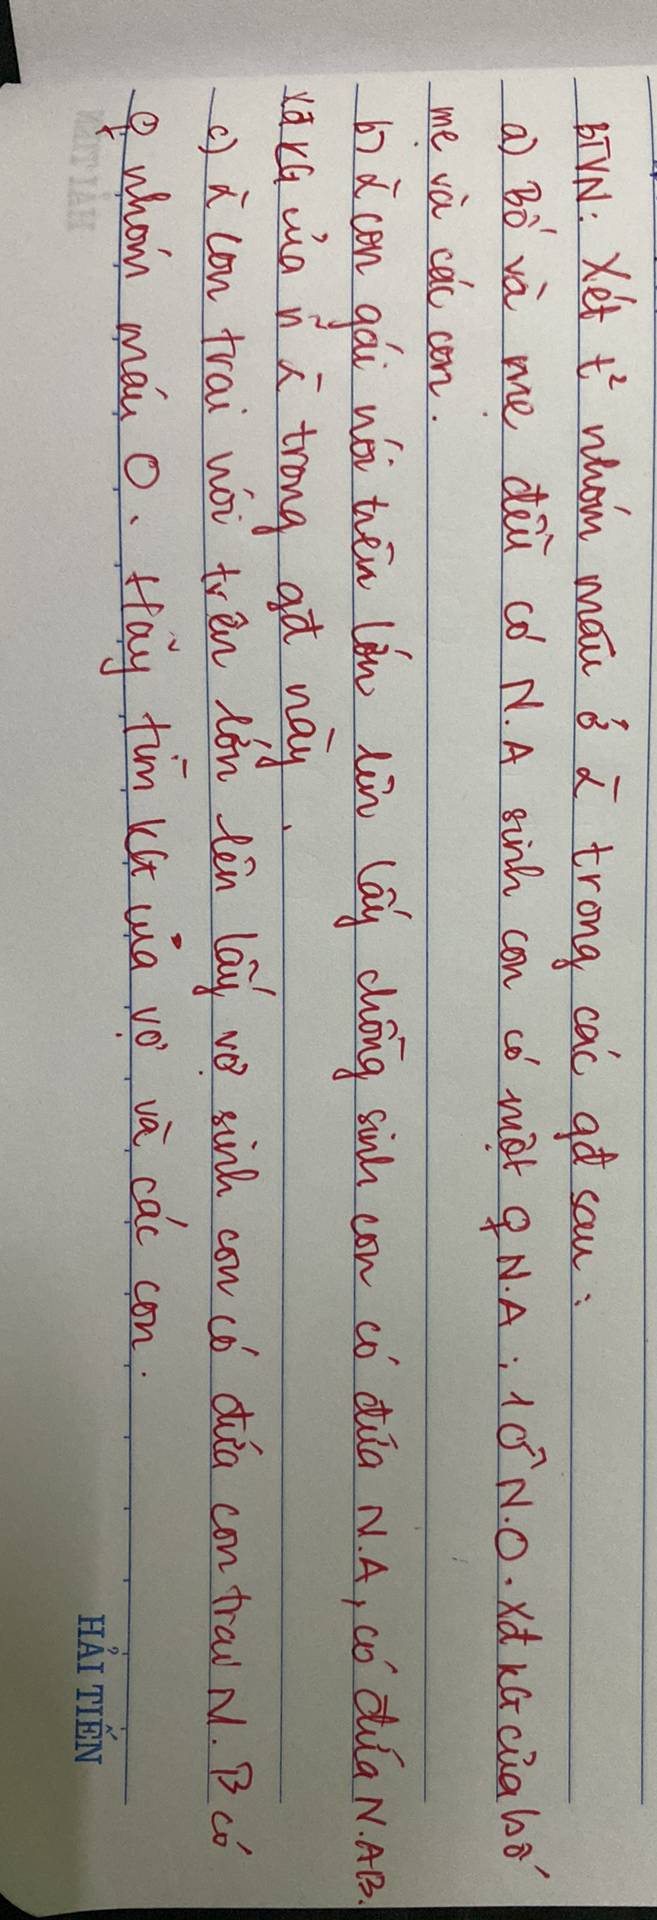 BTVN: Xét t² nhóm máu ở 2 trong các gđ sau:
a) Bố và mẹ đều có N.A sinh con có một ♀ N.A, 1 ♂ N.O. Xđ KG của bố
mẹ và các con.
b) 2 con gái nói trên lớn lên lấy chồng sinh con có đứa N.A, có đứa N.AB.
Xđ KG của n~ 2 trong gđ này.
c) 2 con trai nói trên lớn lên lấy vợ sinh con có đứa con trai N.B có
♀ nhóm máu O. Hãy tìm KG của vợ và các con.
HẢI TIẾN